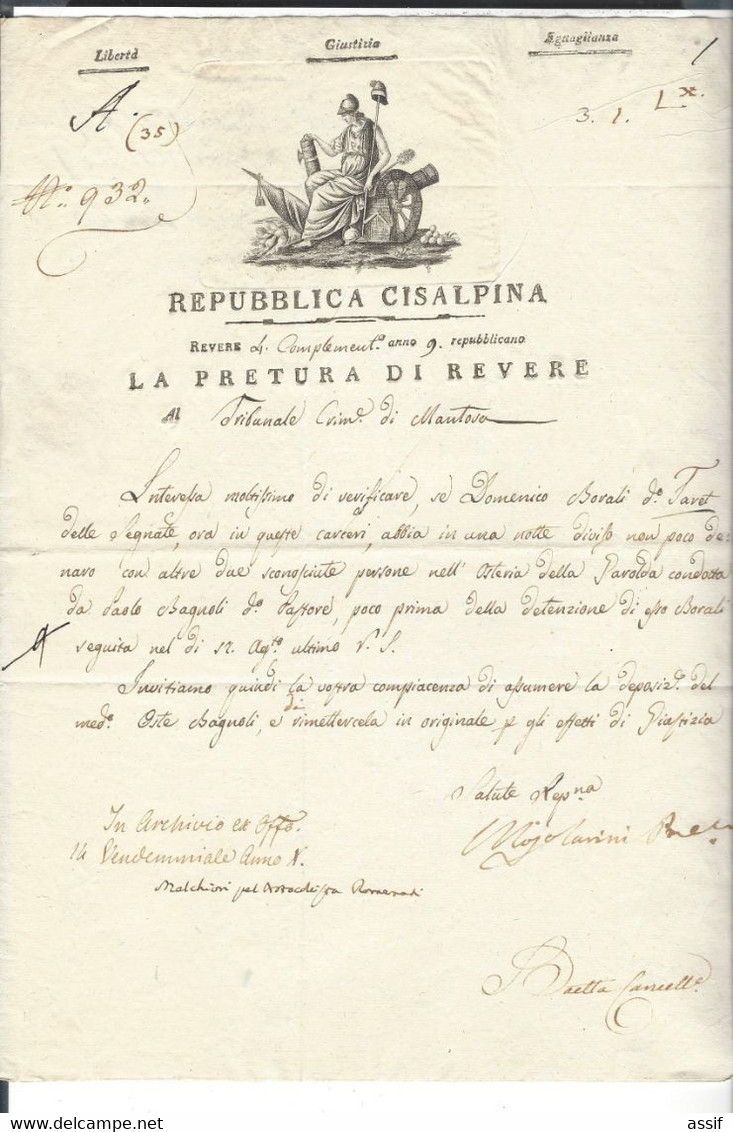 Libertà Giustizia Eguaglianza
1
A. (35)
3. 1. Lx.
No. 932.
REPUBBLICA CISALPINA
REVERE 4. Complement.o anno 9. repubblicano
LA PRETURA DI REVERE
Al Tribunale Crim.e di Mantova
Interessa moltissimo di verificare, se Domenico Borali d.o Taret
delle Segnate, ora in queste carceri, abbia in una notte diviso non poco de-
naro con altre due sconosciute persone nell' Osteria della Parolda condotta
da Paolo Bagnoli d.o Pastore, poco prima della detenzione di esso Borali
seguita nel dì 12. Ag.to ultimo V. S.
Invitiamo quindi la vostra compiacenza di assumere la deposiz.e del
med.o Oste Bagnoli, e di rimettercela in originale p gli effetti di Giustizia
Salute Rep.na
In Archivio ex Offo.
14 Vendemmiale Anno X.
Melchiori pel
Cancell.e
assif